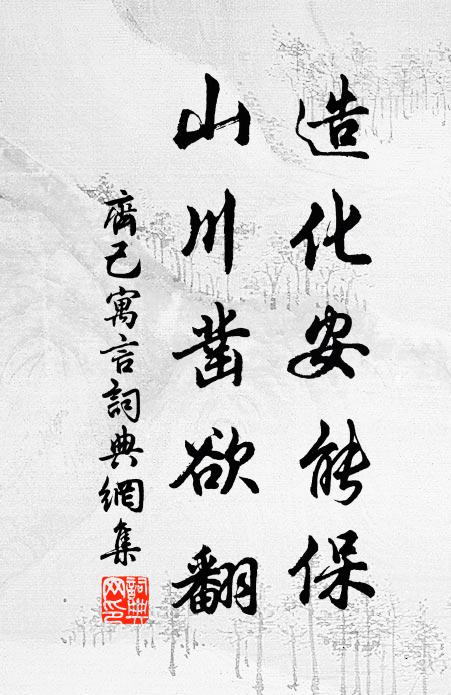 造化安能保
山川凿欲翻
齊己寓言詞典網集
詞典